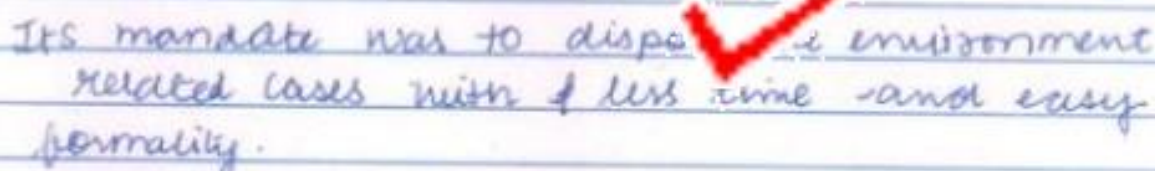 Its mandate was to environment
related cases with less time and easy
formality.